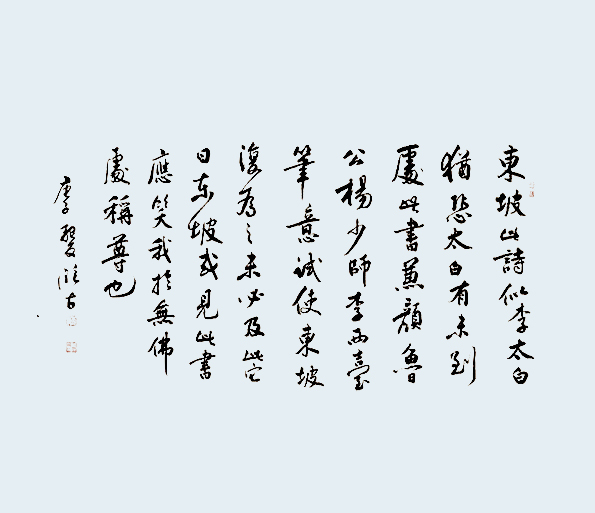 東坡此詩似李太白
猶恐太白有未到
處此書兼顏魯
公楊少師李西臺
筆意試使東坡
復為之未必及此它
日東坡或見此書
應笑我於無佛
處稱尊也
臨古